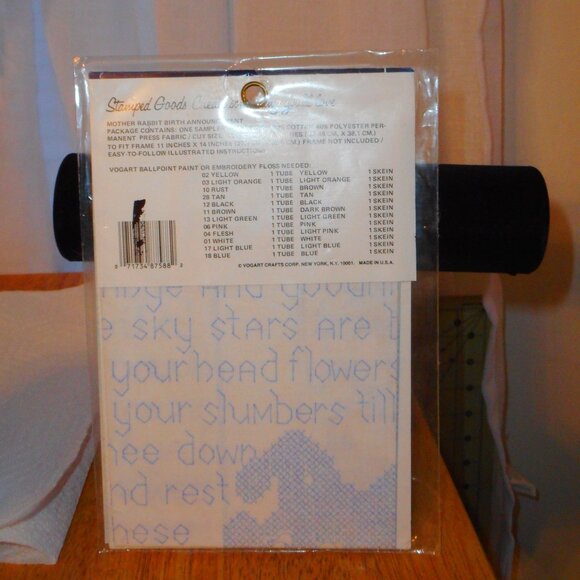 Stamped Goods
MOTHER RABBIT BIRTH
PACKAGE CONTAINS: ONE POLYESTER PER-
MANENT PRESS FABRIC / CUT SIZE 38.1 CM.)
TO FIT FRAME 11 INCHES X 14 INCHES FRAME NOT INCLUDED /
EASY-TO-FOLLOW ILLUSTRATED
VOGART BALLPOINT PAINT OR EMBROIDERY FLOSS NEEDED:
02 YELLOW 1 TUBE YELLOW 1 SKEIN
03 LIGHT ORANGE 1 TUBE LIGHT ORANGE 1 SKEIN
10 RUST 1 TUBE BROWN 1 SKEIN
28 TAN 1 TUBE TAN 1 SKEIN
12 BLACK 1 TUBE BLACK 1 SKEIN
11 BROWN 1 TUBE DARK BROWN 1 SKEIN
13 LIGHT GREEN 1 TUBE LIGHT GREEN 1 SKEIN
06 PINK 1 TUBE PINK 1 SKEIN
04 FLESH 1 TUBE LIGHT PINK 1 SKEIN
01 WHITE 1 TUBE WHITE 1 SKEIN
17 LIGHT BLUE 1 TUBE LIGHT BLUE 1 SKEIN
18 BLUE 1 TUBE BLUE 1 SKEIN
71754 87588 2
© VOGART CRAFTS CORP. NEW YORK, N.Y. 10001. MADE IN U.S.A.
and
e sky stars are
your head flowers
your slumbers till
hee down
nd rest
hese